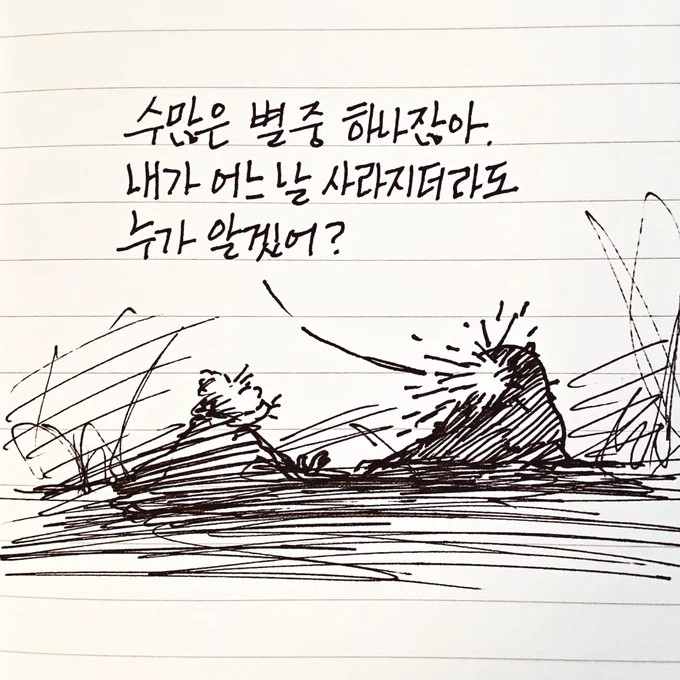 수많은 별 중 하나잖아.
내가 어느 날 사라지더라도
누가 알겠어?